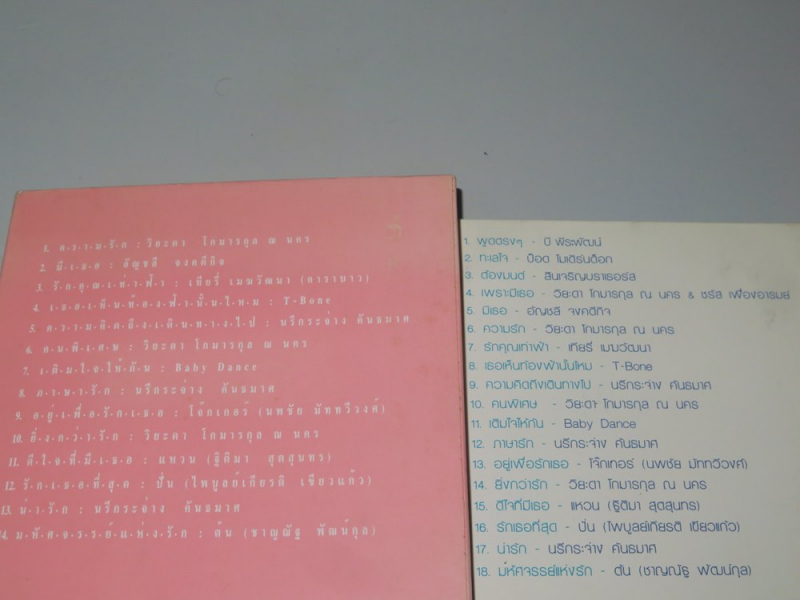 1. ค·ว·า·ม·รั·ก : วิยะดา โกมารกุล ณ นคร
2. มี·เ·ธ·อ : อัญชลี จงคดีกิจ
3. รั·ก·คุ·ณ·เ·ท่·า·ฟ้·า : เทียรี่ เมฆวัฒนา (คาราบาว)
4. เ·ธ·อ·เ·ห็·น·ท้·อ·ง·ฟ้·า·นั้·น·ไ·ห·ม : T-Bone
5. ค·ว·า·ม·คิ·ด·ถึ·ง·เ·ดิ·น·ท·า·ง·ไ·ป : นรีกระจ่าง คันธมาศ
6. ค·น·พิ·เ·ศ·ษ : วิยะดา โกมารกุล ณ นคร
7. เ·ติ·ม·ใ·จ·ใ·ห้·กั·น : Baby Dance
8. ภ·า·ษ·า·รั·ก : นรีกระจ่าง คันธมาศ
9. อ·ยู่·เ·พื่·อ·รั·ก·เ·ธ·อ : โจ๊กเกอร์ (นพชัย มัททวีวงศ์)
10. ยิ่·ง·ก·ว่·า·รั·ก : วิยะดา โกมารกุล ณ นคร
11. ดี·ใ·จ·ที่·มี·เ·ธ·อ : แหวน (ฐิติมา สุตสุนทร)
12. รั·ก·เ·ธ·อ·ที่·สุ·ด : ปั่น (ไพบูลย์เกียรติ เขียวแก้ว)
13. น่·า·รั·ก : นรีกระจ่าง คันธมาศ
14. ม·หั·ศ·จ·ร·ร·ย์·แ·ห่·ง·รั·ก : ต้น (ชาญณัฐ พัฒน์กุล)
1. พูดตรงๆ - ปี พีระพัฒน์
2. ทะเลใจ - ป๊อด โมเดิร์นด็อก
3. ต้องมนต์ - สินเจริญบราเธอร์ส
4. เพราะมีเธอ - วิยะดา โกมารกุล ณ นคร & ชรัส เฟื่องอารมย์
5. มีเธอ - อัญชลี จงคดีกิจ
6. ความรัก - วิยะดา โกมารกุล ณ นคร
7. รักคุณเท่าฟ้า - เทียรี่ เมฆวัฒนา
8. เธอเห็นท้องฟ้านั้นไหม - T-Bone
9. ความคิดถึงเดินทางไป - นรีกระจ่าง คันธมาศ
10. คนพิเศษ - วิยะดา โกมารกุล ณ นคร
11. เติมใจให้กัน - Baby Dance
12. ภาษารัก - นรีกระจ่าง คันธมาศ
13. อยู่เพื่อรักเธอ - โจ๊กเกอร์ (นพชัย มัททวีวงศ์)
14. ยิ่งกว่ารัก - วิยะดา โกมารกุล ณ นคร
15. ดีใจที่มีเธอ - แหวน (ฐิติมา สุตสุนทร)
16. รักเธอที่สุด - ปั่น (ไพบูลย์เกียรติ เขียวแก้ว)
17. น่ารัก - นรีกระจ่าง คันธมาศ
18. มหัศจรรย์แห่งรัก - ต้น (ชาญณัฐ พัฒน์กุล)